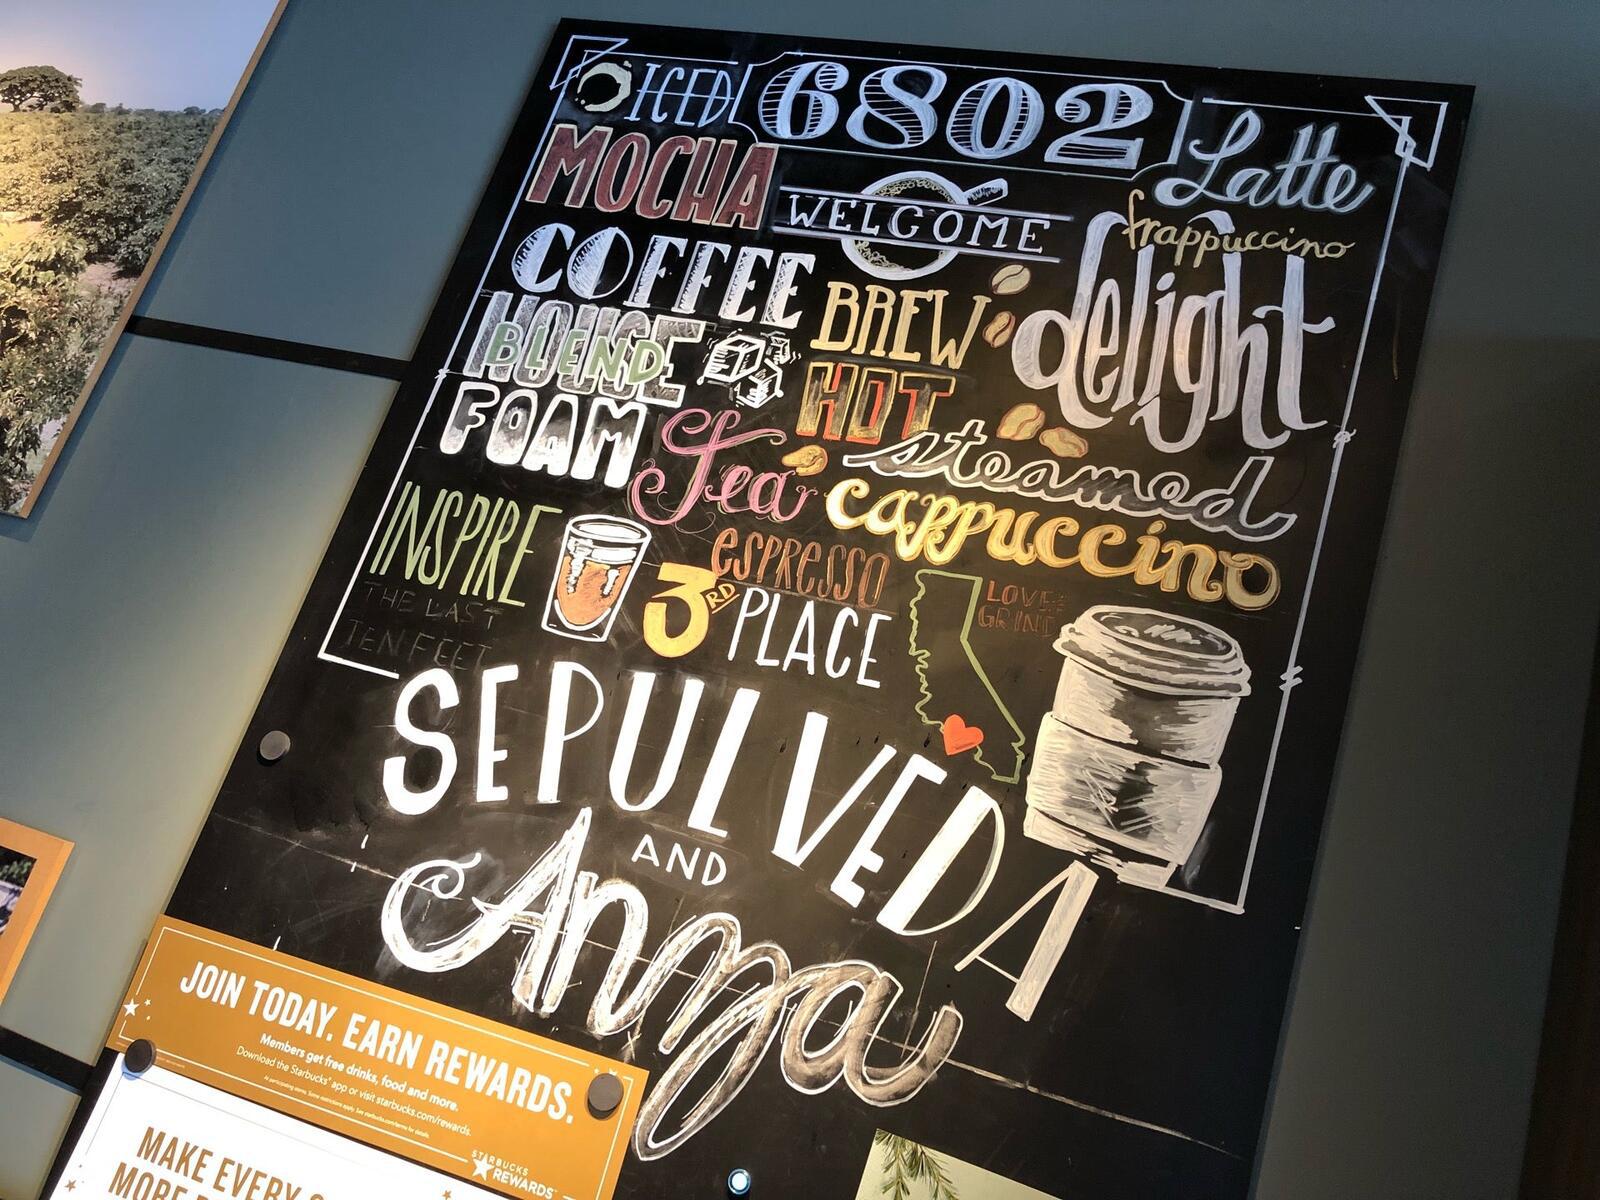 ICED
6802
Latte
MOCHA
WELCOME
frappuccino
COFFEE
delight
HOUSE
BLEND
BREW
HOT
FOAM
Tea
steamed
cappuccino
INSPIRE
espresso
3RD PLACE
LOVE
GRIND
THE LAST
TEN FEET
SEPULVEDA
AND
Anza
JOIN TODAY. EARN REWARDS.
Members get free drinks, food and more.
Download the Starbucks® app or visit starbucks.com/rewards.
At participating stores. Some restrictions apply. See starbucks.com/terms for details.
STARBUCKS
REWARDS™
MAKE EVERY
MORE